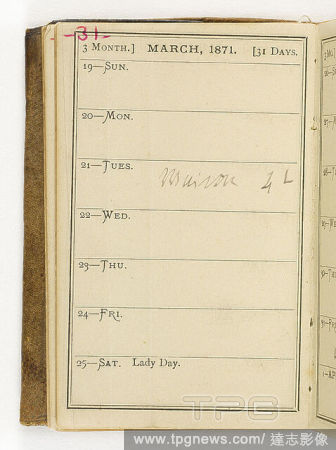 -31-
3 MONTH.] MARCH, 1871. [31 DAYS.
19—SUN.
20—MON.
21—TUES.
22—WED.
23—THU.
24—FRI.
25—SAT. Lady Day.
TPG
www.tpgnews.com/ 達志影像